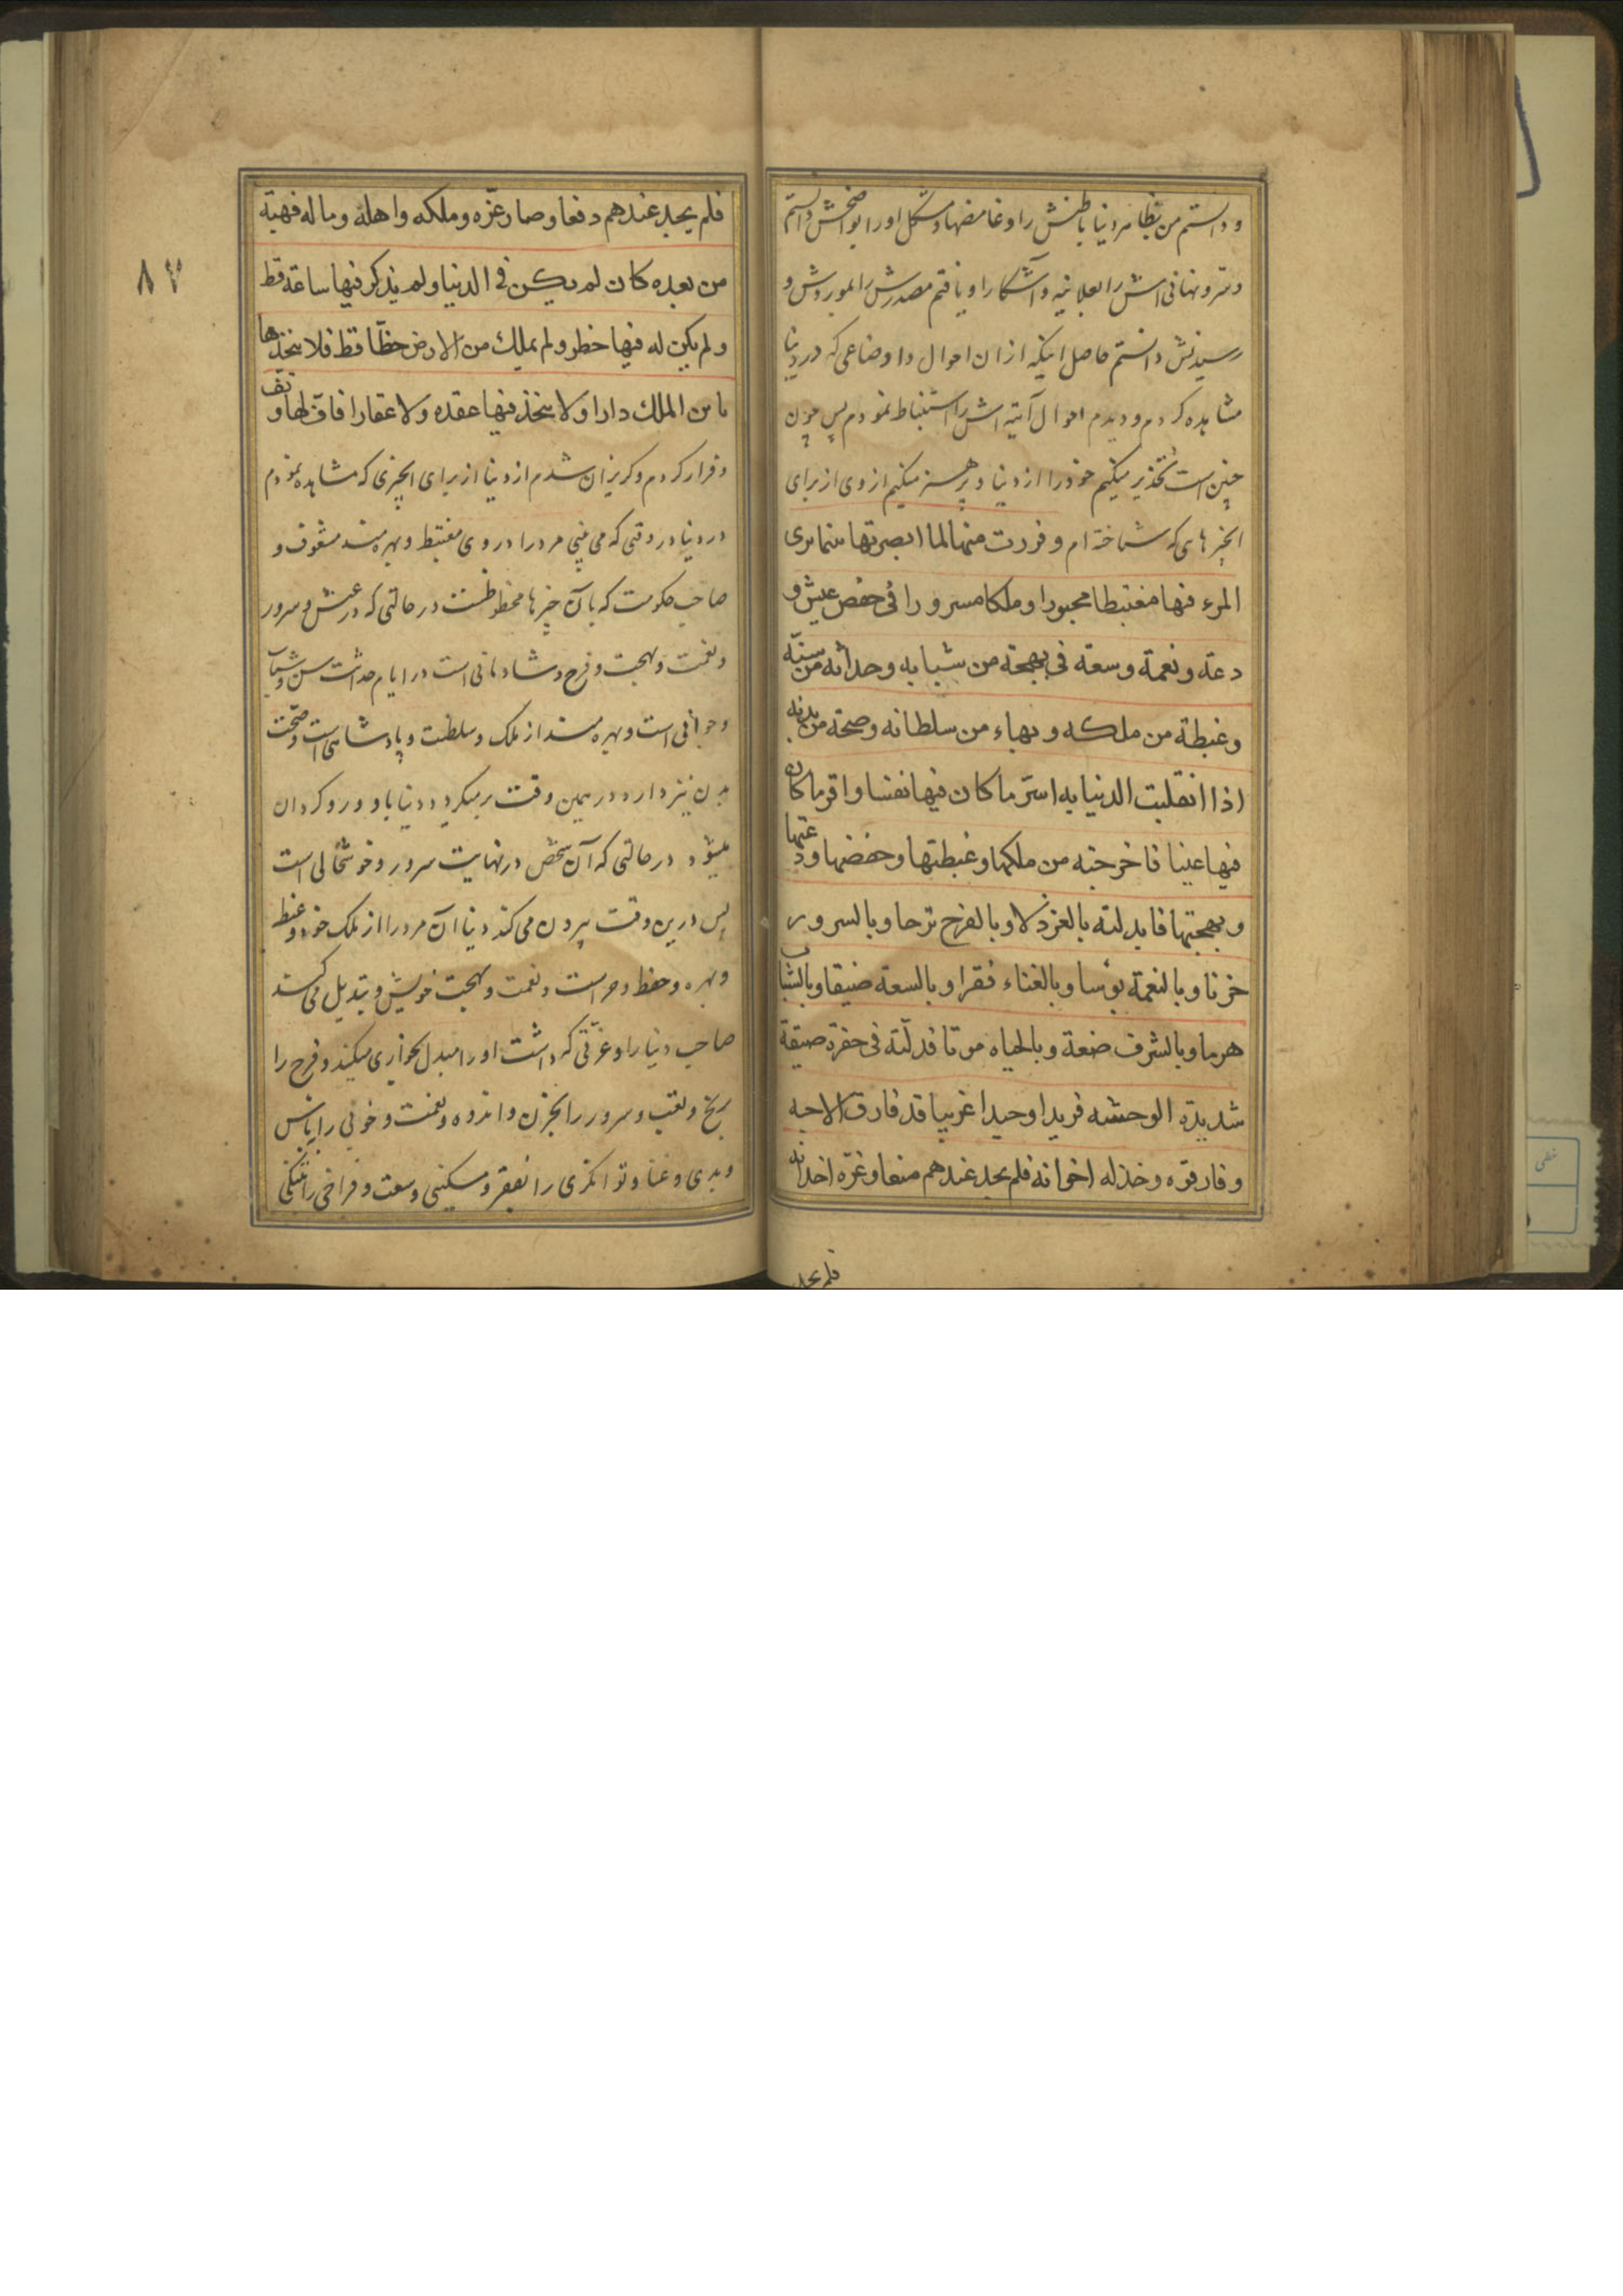 و دانستم من بظاهر دنیا باطنش را و غامضها و مشکل اورا بواضحش دانستم
و سرّ و نهانی اش را بعلانیه و آشکارا و یافتم مصدرش را بموردش و
رسیدنش دانستم حاصل اینکه از ان احوال و اوضاعی که در دنیا
مشاهده کردم و دیدم احوال آتیه اش را استنباط نمودم پس چون
چنین است تحذیر میکنیم خود را از دنیا و پرهیز میکنیم از وی از برای
انچیزهایی که شناخته ام و فررت منها لما ابصرتها بینما یری
المرء فیها مغتبطا محبورا و ملکا مسرورا فی خفض عیش و
دعة و نعمة و سعة فی بهجة من شبابه و حداثة من سنّه
و غبطة من ملکه و بهاء من سلطانه و صحة من بدنه
اذا انقلبت الدنیا به اسرّ ما کان فیها نفسا و اقر ما کان
فیها عینا فاخرجته من ملکها و غبطتها و خفضها و دعتها
و بهجتها فابدلته بالعز ذلا و بالفرح ترحا و بالسرور
حزنا و بالنعمة بؤسا و بالغناء فقرا و بالسعة ضیقا و بالشباب
هرما و بالشرف ضعة و بالحیاه موتا فدلّته فی حفرة ضیقة
شدیدة الوحشه فریدا وحیدا غریبا قد فارق الاحبه
و فارقوه و خذله اخوانه فلم یجد عندهم منعا و غرّه اخدانه
فلم یجد
۸۷
فلم یجد عندهم دفعا و صار عزّه و ملکه و اهله و ماله فهبة
من بعده کان لم یکن فی الدنیا و لم یذکر فیها ساعة قط
و لم یکن له فیها خطر و لم یملک من الارض حظّا قط فلا تتخذها
یا بن الملک دارا و لا تتخذ فیها عقده و لا عقارا فافّ لها و تفّ
و فرار کردم و کریزان شدم از دنیا از برای انچیزی که مشاهده نمودم
در دنیا در وقتی که می بینی مرد را در وی مغتبط و بهره مند مشعوف و
صاحب حکومت که بآن چیزها محظوظست در حالتی که در عیش و سرور
و نعمت و بهجت و فرح و شادمانی است در ایام حداثت سن و شباب
و جوانی است و بهره مند از ملک و سلطنت و پادشاهی است و صحّت
بدن نیز دارد در همین وقت برمیکردد دنیا باو و رو کردان
میشود در حالتی که آن شخص در نهایت سرور و خوشحالی است
پس درین وقت بیرون می کند دنیا آن مرد را از ملک خود و غبط
و بهره و حفظ و حراست و نعمت و بهجت خویش و تبدیل می کند
صاحب دنیا را و عزّتی که داشت اورا مبدل بخواری میکند و فرح را
برنج و تعب و سرور را بحزن و اندوه و نعمت و خوبی را بیأس
و بدی و غنا و توانکری را بفقر و مسکینی و وسعت و فراخی را بتنکی
خطی